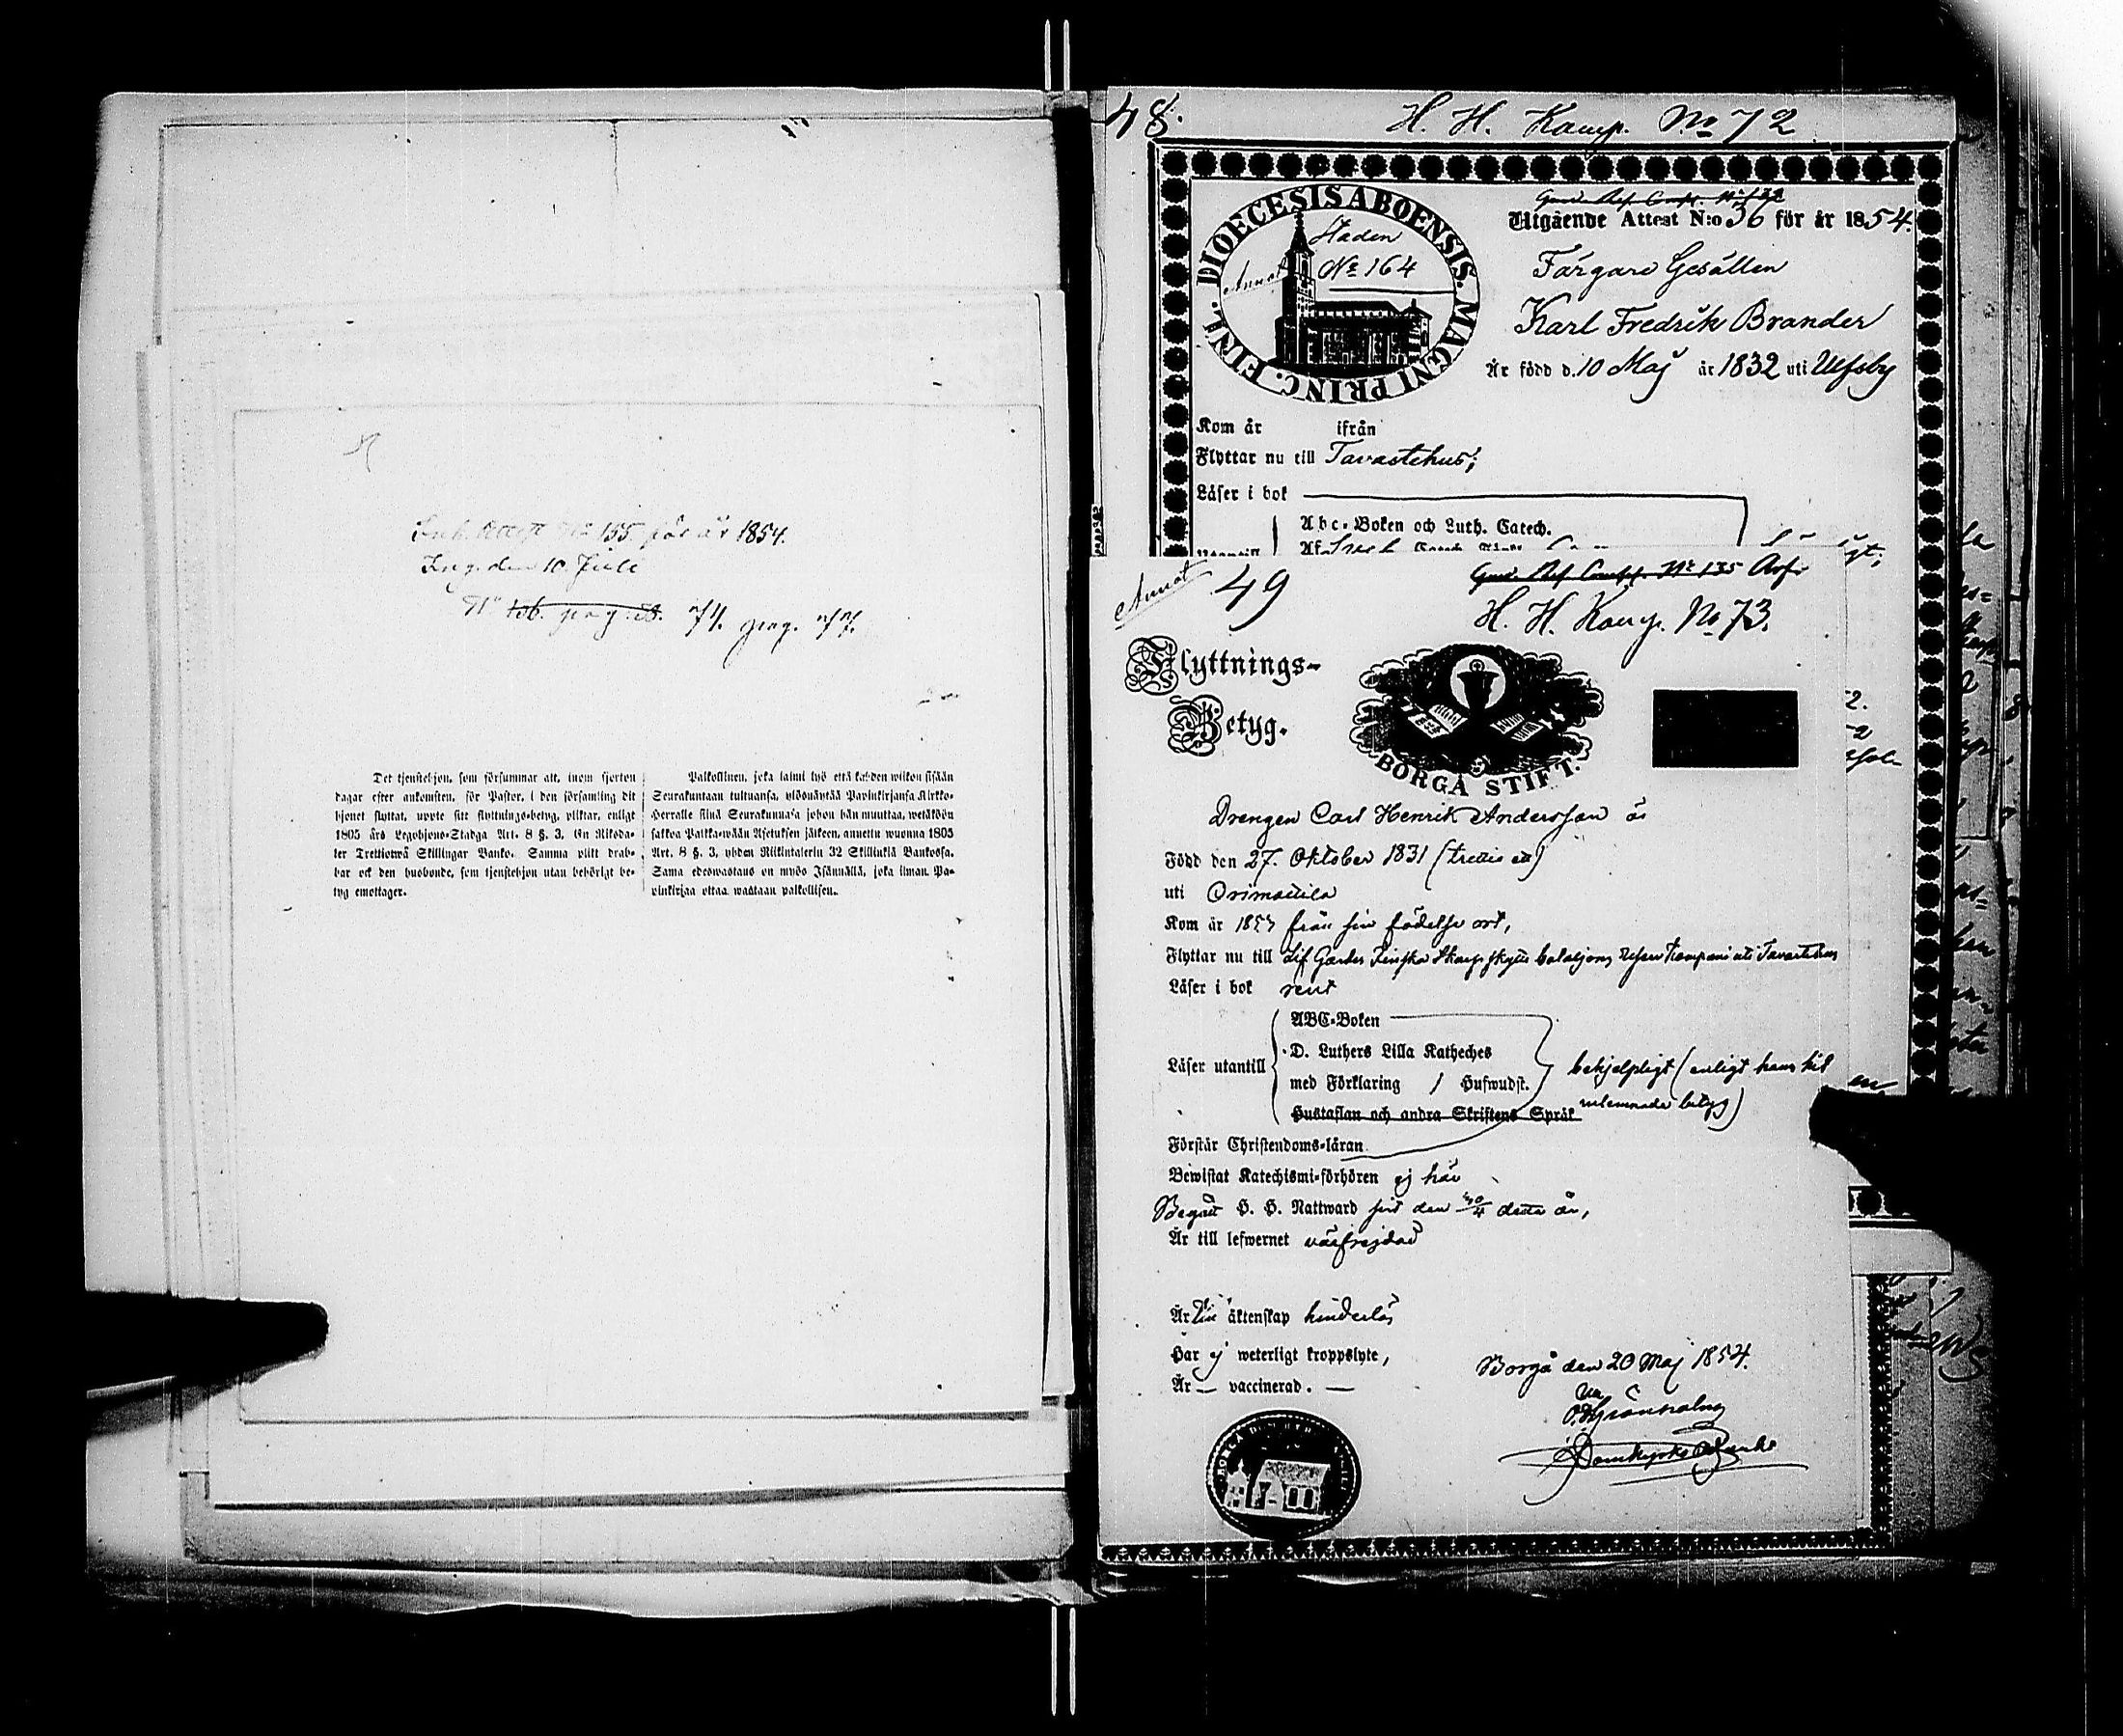 Ink. Attest No 155 för år 1854.
Ing. den 10 Juli
No 74. pag. 77.
Det tjenstehjon, som försummar att, inom fjorton
dagar efter ankomsten, för Pastor, i den församling dit
hjonet flyttat, uppte sitt flyttnings-betyg, pliktar, enligt
1805 års Legohjons-Stadga Art. 8 §. 3, En Riksda-
ler Trettiotwå Skillingar Banko. Samma plikt drab-
bar ock den husbonde, som tjenstehjon utan behörigt be-
tyg emottager.
Palkollinen, joka laimi lyö että kahden wiikon sisään
Seurakuntaan tultuansa, ylösnäyttää Papinkirjansa Kirkko-
Herralle siinä Seurakunnasa johon hän muuttaa, wetäköön
sakkoa Palkka-wään Asetuksen jälkeen, annettu wuonna 1805
Art. 8 §. 3, yhden Riikintalerin 32 Skillinkiä Bankossa.
Sama edeswastaus on myös Isännällä, joka ilman Pa-
pinkirjaa ottaa wastaan palkollisen.
48.
H. H. Komp. No 72
DIOECESIS ABOENSIS. MAGNI PRINC. FINL.
Staden
No 164
Annot
Utgående Attest N:o 36 för år 1854.
Färgare Gesällen
Karl Fredrik Brander
Är född d. 10 Maj år 1832 uti Ulfsby
Kom år ifrån
Flyttar nu till Tavastehus;
Läser i bok
Abc-Boken och Luth. Catech.
Annot
49
Gard. Ref. Comp. No 135
H. H. Komp. No 73.
Flyttnings-
Betyg.
BORGÅ STIFT.
Drengen Carl Henrik Andersson är
Född den 27. Oktober 1831 (trettio ett)
uti Orimattila
Kom år 1853 från sin födelse ort,
Flyttar nu till Lif Gardes Finska Skarpskytte bataljons Reserv Kompani uti Tavastehus
Läser i bok rent
ABC-Boken
Läser utantill
D. Luthers Lilla Katheches
med Förklaring / Hufwudst.
Hustaflan och andra Skriftens Språk
behjelpligt (enligt hans hit
medlemnade betyg)
Förstår Christendoms-läran
Bewistat Katechismi-förhören ej här
Begått H. H. Nattward sist den 30/4 detta år,
Är till lefwernet välfrejdad
Är till äktenskap hinderlös
Har ej weterligt kroppslyte,
Är — vaccinerad. —
Borgå den 20 Maj 1854.